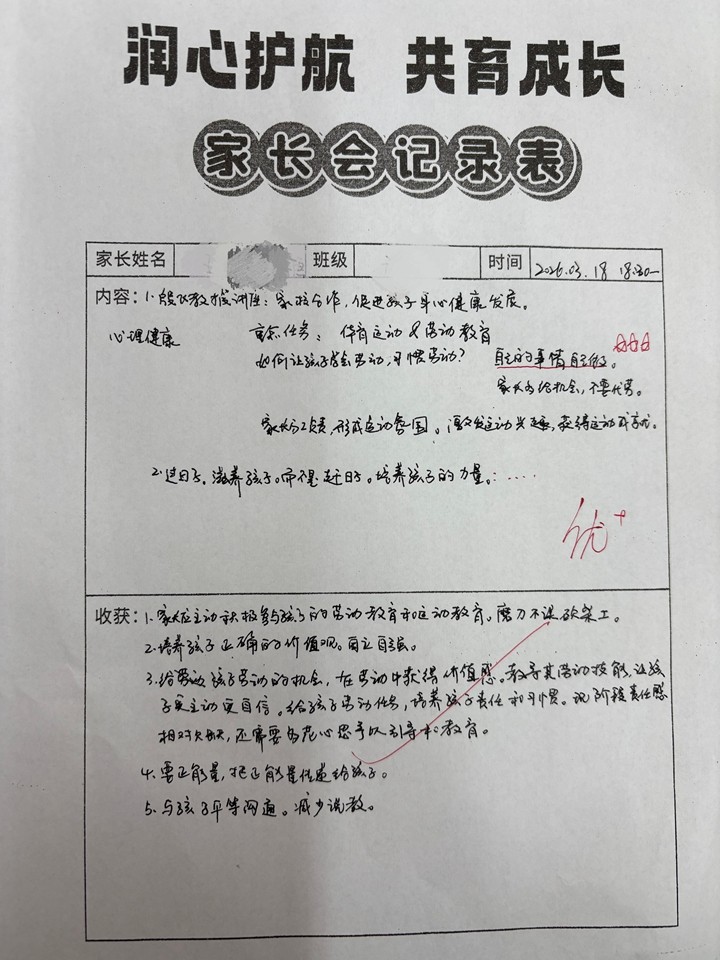 润心护航 共育成长
家长会记录表
家长姓名 班级 时间 2026.03.18 18:30—
内容：1.殷飞教授讲座：家校合作，促进孩子身心健康发展。
心理健康 重点任务：体育运动&劳动教育
如何让孩子学会劳动，习惯劳动？ 自己的事情自己做。
家长多给机会，不要代劳。
家长 形成运动氛围。激发运动兴趣，获得运动成就。
2.过日子，滋养孩子。而不是赶日子。培养孩子的力量。：....
优+
收获：1.家长应主动积极参与孩子的劳动教育和运动教育。磨刀不误砍柴工。
2.培养孩子正确的价值观。自立自强。
3.给 孩子劳动的机会，在劳动中获得价值感。教导其劳动技能，让孩
子更主动更自信。给孩子劳动任务，培养孩子责任和习惯。现阶段责任感
相对欠缺，还需要多花心思予以引导和教育。
4.要正能量，把正能量传递给孩子。
5.与孩子平等沟通。减少说教。